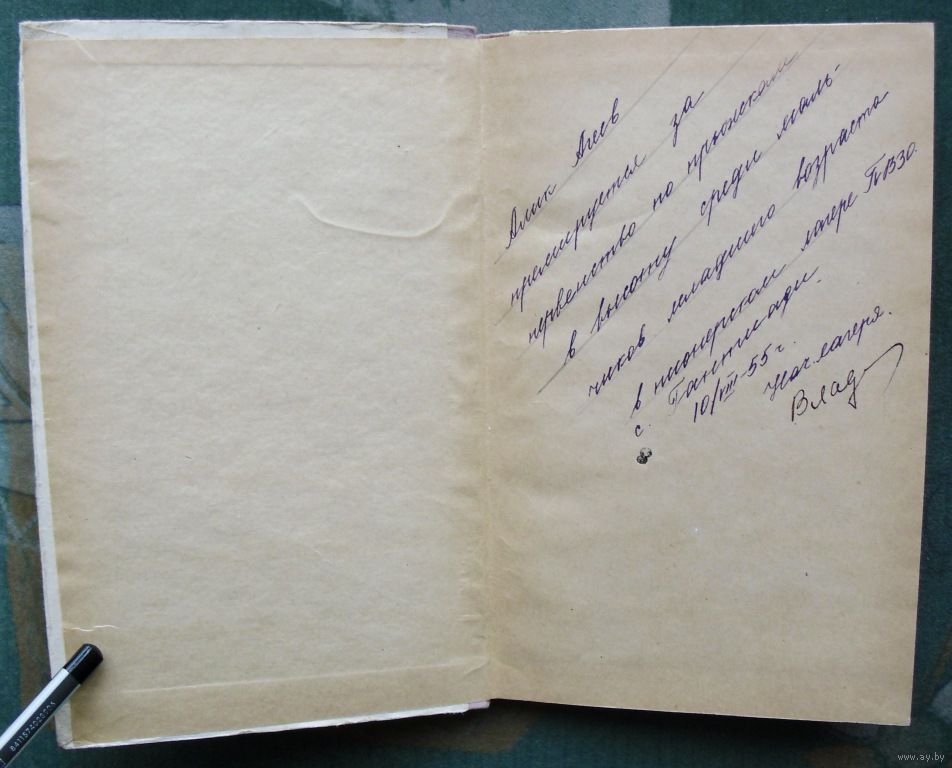 Алик Агеев
премируется за
первенство по прыжкам
в высоту среди маль-
чиков младшего возраста
в пионерском лагере ПВЗО.
с.
10/VIII-55 г.
Нач. лагеря.
Влад
www.ay.by